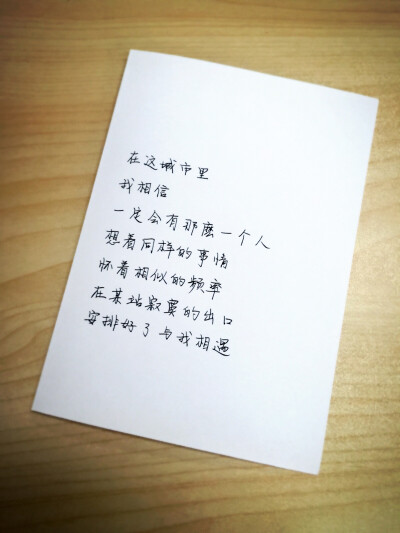 在这城市里
我相信
一定会有那么一个人
想着同样的事情
怀着相似的频率
在某站寂寞的出口
安排好了与我相遇